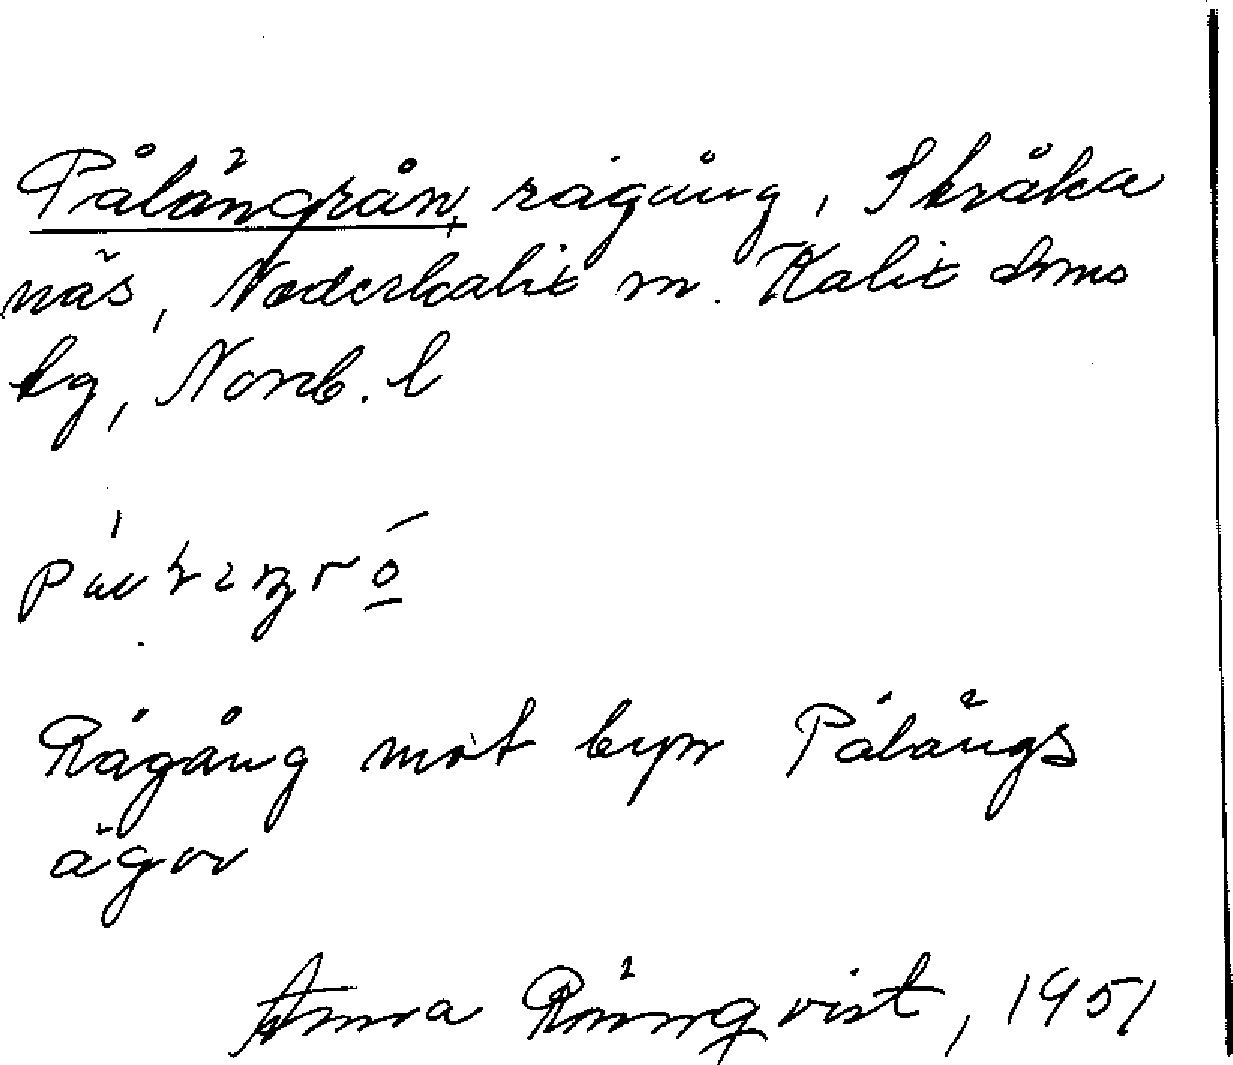 Pålängrån, rågång, Skråka
näs, Nederkalix sn. Kalix dms
lag, Norrb. l
Rågång mot byn Pålängs
ägor
Anna Rönnqvist, 1951